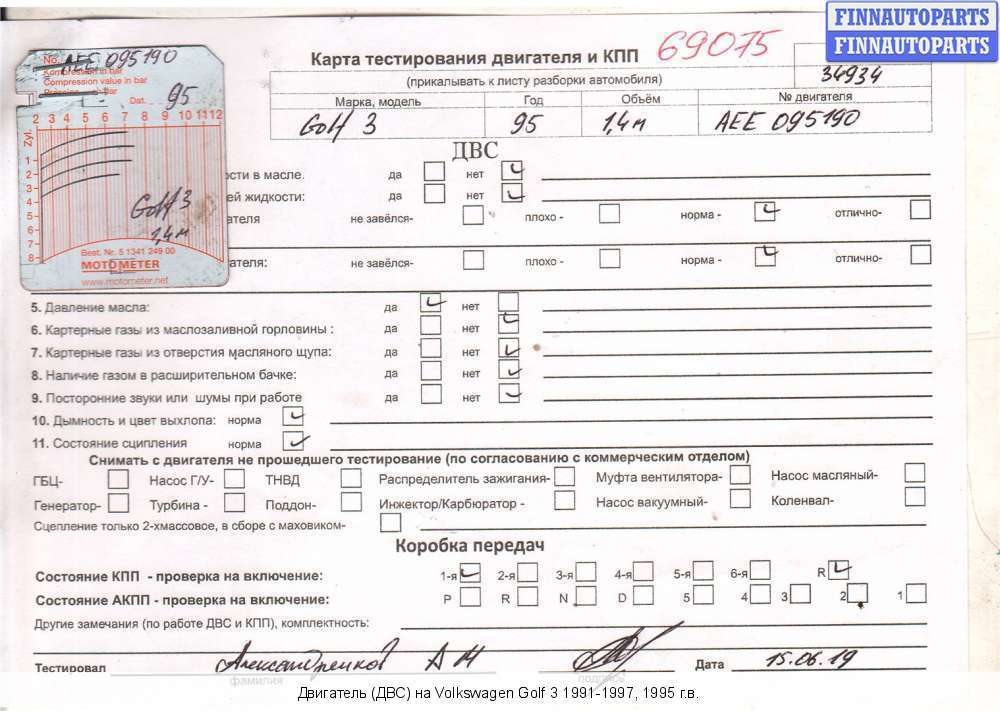 FINNAUTOPARTS
FINNAUTOPARTS
No. AEE 095190
Kompression in bar
Compression value in bar
Dat. 95
2 3 4 5 6 7 8 9 10 11 12
Zyl.
1
2
3
4
5
6
7
8
Golf 3
1,4м
Best. Nr. 5 1341 249 00
MOTOMETER
www.motometer.net
Карта тестирования двигателя и КПП 69075
(прикалывать к листу разборки автомобиля) 34934
Марка, модель Год Объём № двигателя
Golf 3 95 1,4м AEE 095190
ДВС
ости в масле. да нет
ей жидкости: да нет
ателя не завёлся- плохо - норма - отлично-
ателя: не завёлся- плохо - норма - отлично-
5. Давление масла: да нет
6. Картерные газы из маслозаливной горловины : да нет
7. Картерные газы из отверстия масляного щупа: да нет
8. Наличие газом в расширительном бачке: да нет
9. Посторонние звуки или шумы при работе да нет
10. Дымность и цвет выхлопа: норма
11. Состояние сципления норма
Снимать с двигателя не прошедшего тестирование (по согласованию с коммерческим отделом)
ГБЦ- Насос Г/У- ТНВД Распределитель зажигания- Муфта вентилятора- Насос масляный-
Генератор- Турбина - Поддон- Инжектор/Карбюратор - Насос вакуумный- Коленвал-
Сцепление только 2-хмассовое, в сборе с маховиком-
Коробка передач
Состояние КПП - проверка на включение: 1-я 2-я 3-я 4-я 5-я 6-я R
Состояние АКПП - проверка на включение: P R N D 5 4 3 2 1
Другие замечания (по работе ДВС и КПП), комплектность:
Тестировал Александренков А М Дата 15.06.19
фамилия подпись
Двигатель (ДВС) на Volkswagen Golf 3 1991-1997, 1995 г.в.